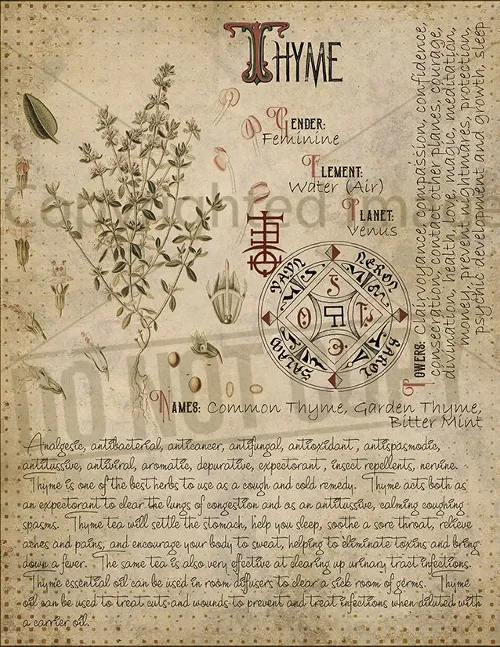 THYME
GENDER:
Feminine
ELEMENT:
Water (Air)
PLANET:
Venus
POWERS: Clairvoyance, compassion, confidence,
consecration, contact other planes, courage,
divination, health, love, magic, meditation,
money, prevent nightmares, protection,
psychic development and growth, sleep
NAMES: Common Thyme, Garden Thyme,
Bitter Mint
Analgesic, antibacterial, anticancer, antifungal, antioxidant, antispasmodic,
antitussive, antiviral, aromatic, depurative, expectorant, insect repellents, nervine.
Thyme is one of the best herbs to use as a cough and cold remedy. Thyme acts both as
an expectorant to clear the lungs of congestion and as an antitussive, calming coughing
spasms. Thyme tea will settle the stomach, help you sleep, soothe a sore throat, relieve
aches and pains, and encourage your body to sweat, helping to eliminate toxins and bring
down a fever. The same tea is also very effective at clearing up urinary tract infections.
Thyme essential oil can be used in room diffusers to clear a sick room of germs. Thyme
oil can be used to treat cuts and wounds to prevent and treat infections when diluted with
a carrier oil.
Copyrighted
DO NOT